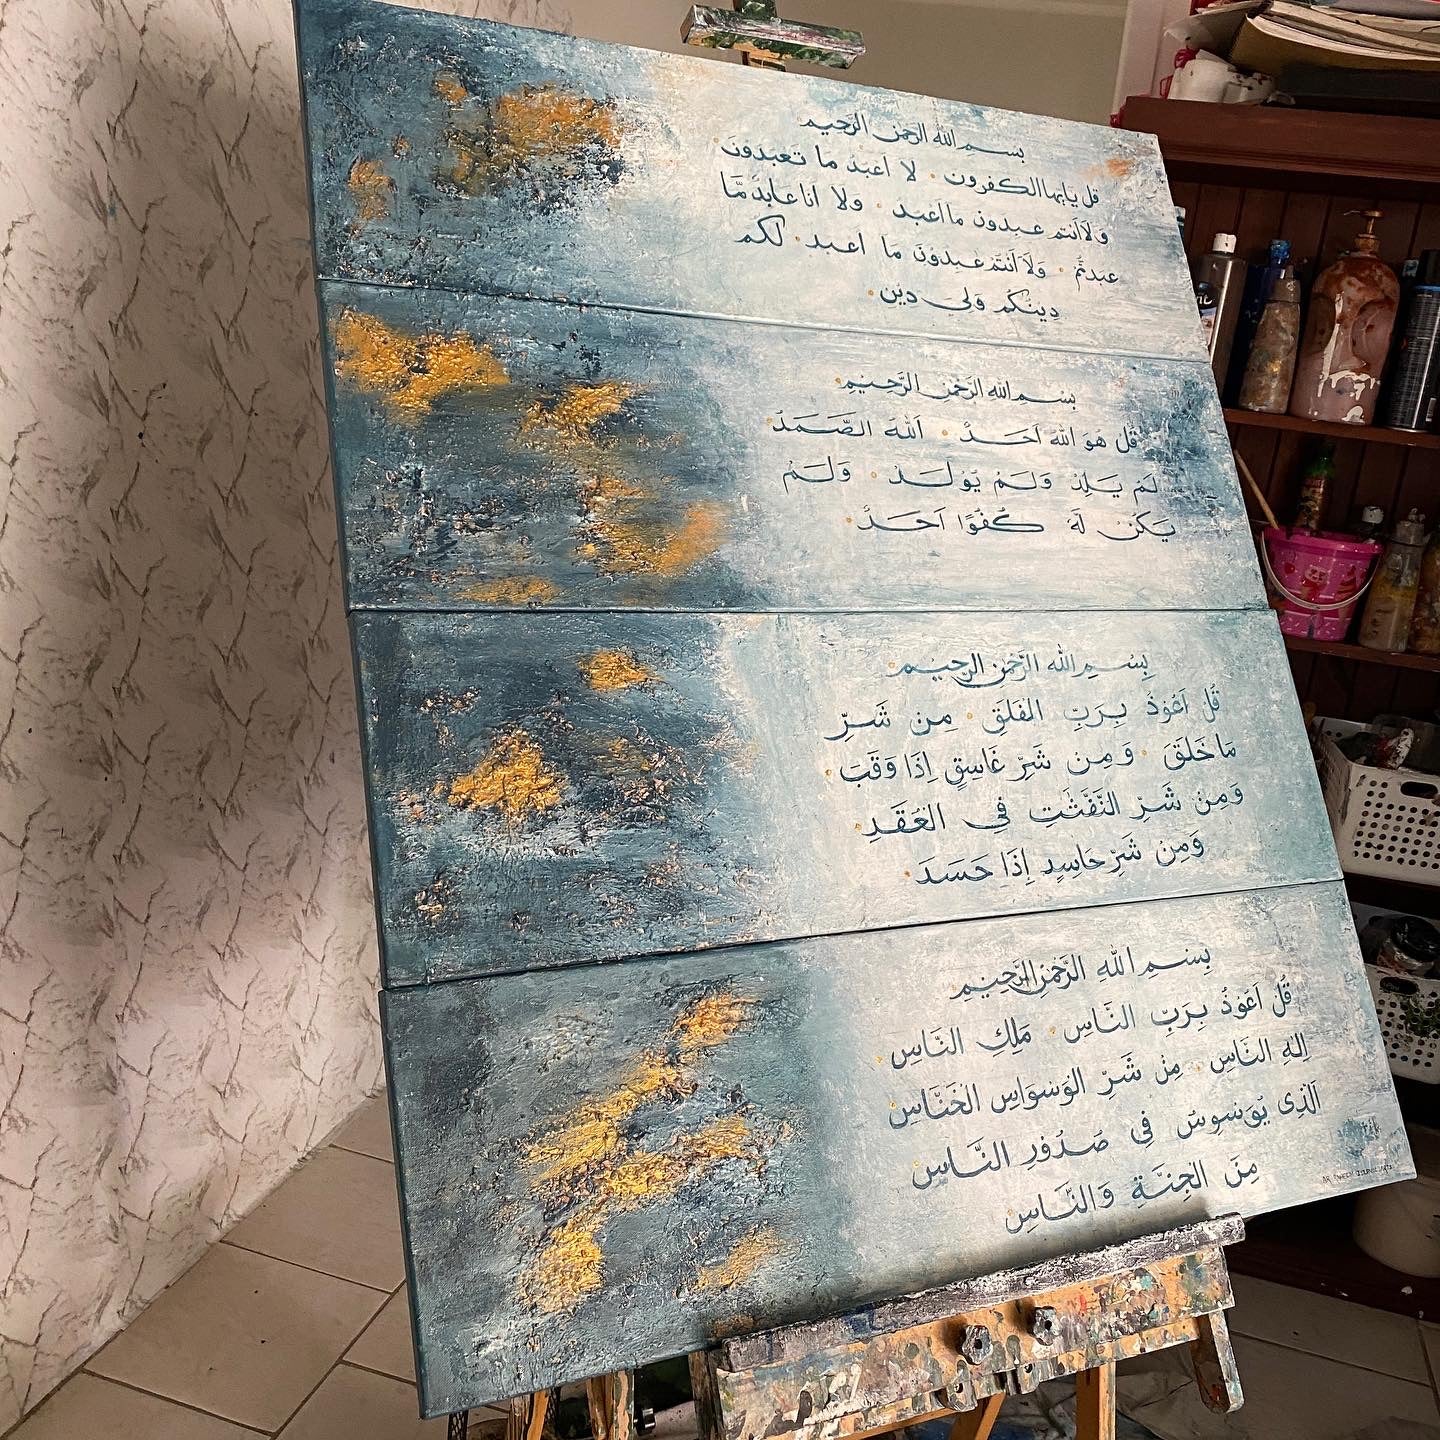 بسم الله الرحمن الرحيم
قل يايها الكفرون . لا اعبد ما تعبدون
ولا أنتم عبدون ما أعبد . ولا انا عابد مّا
عبدتّم . ولا أنتم عبدون ما اعبد . لكم
دينكم ولى دين .
بسم الله الرحمن الرحيم .
قل هو الله أحد . الله الصّمد .
لم يلد ولم يولد . ولم
يكن له كفوًا أحد .
بسم الله الرحمن الرحيم
قل أعوذ برب الفلق . من شرّ
ما خلق . ومن شرّ غاسقٍ إذا وقب .
ومن شرّ النّفّثت في العقد .
ومن شرّ حاسدٍ إذا حسد .
بسم الله الرحمن الرحيم
قل أعوذ برب النّاس . ملك النّاس .
اله النّاس . من شرّ الوسواس الخنّاس .
الّذى يوسوس فى صدور النّاس .
من الجنّة والنّاس .